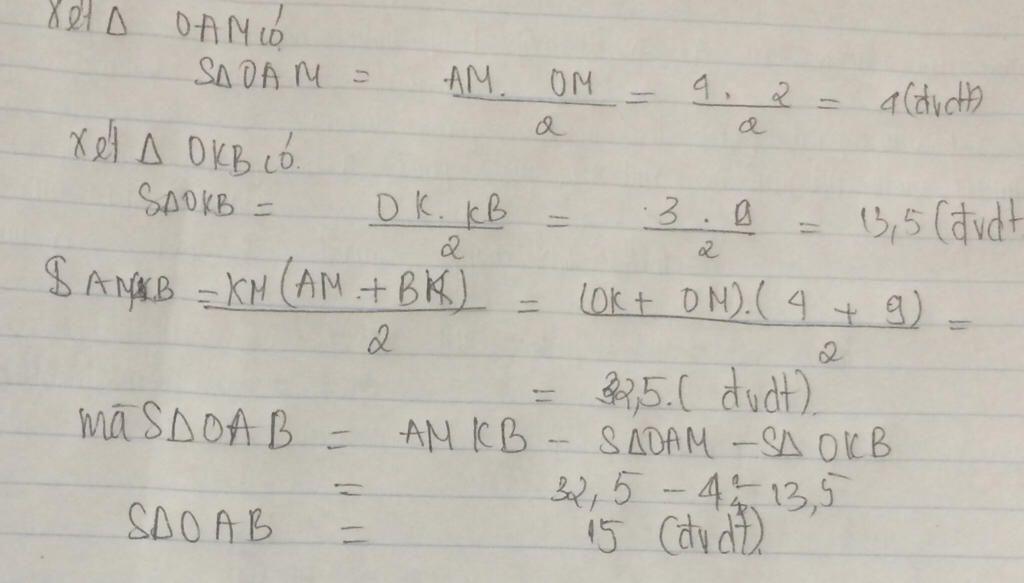 Xét Δ OAM có
SΔOAM = AM. OM / 2 = 4. 2 / 2 = 4 (đvdt)
Xét Δ OKB có.
SΔOKB = OK. KB / 2 = 3. 9 / 2 = 13,5 (đvdt
S AMKB = KM (AM + BK) / 2 = (OK + OM).(4 + 9) / 2 =
= 32,5. (đvdt).
mà SΔOAB = AMKB - SΔOAM - SΔ OKB
= 32,5 - 4 - 13,5
SΔOAB = 15 (đvdt).